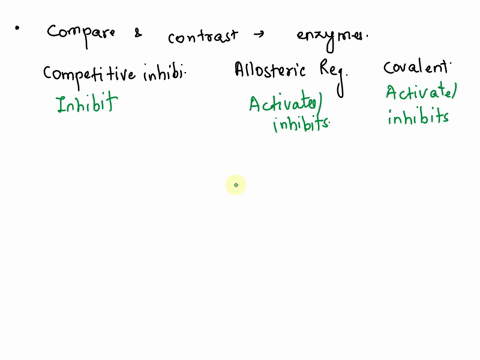 • Compare & contrast → enzymes.
Competitive inhibi. Allosteric Reg. Covalent.
Inhibit Activates/ Activate/
inhibits. inhibits